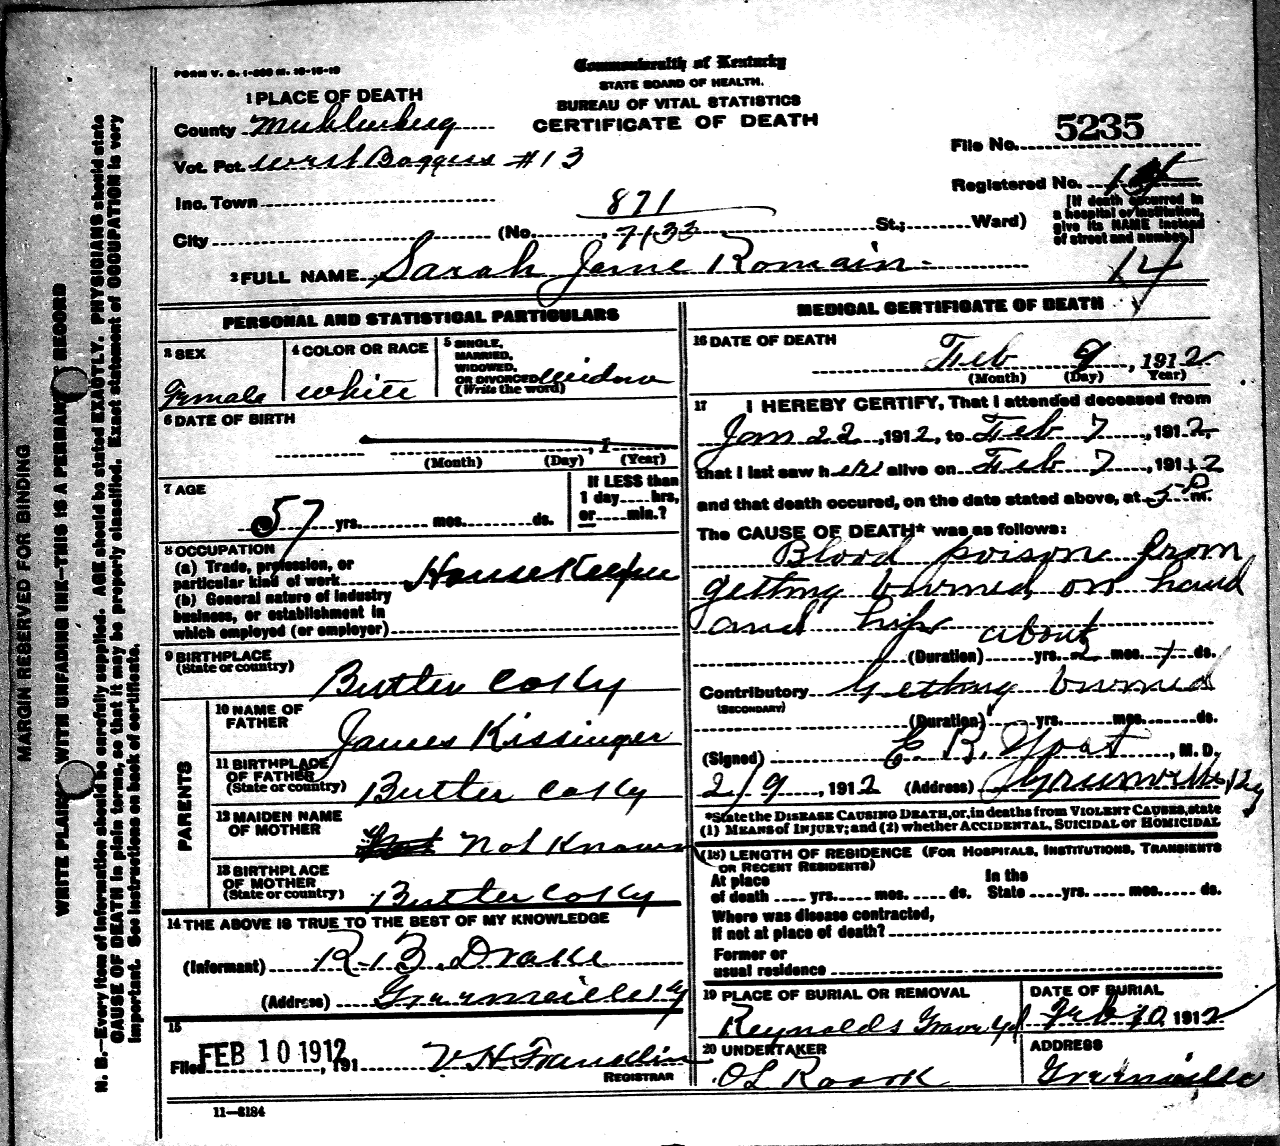 FORM V. S. 1-
Commonwealth of Kentucky
STATE BOARD OF HEALTH.
BUREAU OF VITAL STATISTICS
CERTIFICATE OF DEATH
1 PLACE OF DEATH
County Muhlenberg
Vot. Pct. West Boggess #13
Inc. Town
City (No. St.; Ward)
871
7133
File No. 5235
Registered No.
[If death occurred in
a hospital or institution,
give its NAME instead
of street and number.]
14
2 FULL NAME Sarah Jane Romain
PERSONAL AND STATISTICAL PARTICULARS
3 SEX
Female
4 COLOR OR RACE
white
5 SINGLE,
MARRIED,
WIDOWED,
OR DIVORCED widow
(Write the word)
6 DATE OF BIRTH
, 1
(Month) (Day) (Year)
7 AGE
57 yrs. mos. ds.
If LESS than
1 day hrs,
or min.?
8 OCCUPATION
(a) Trade, profession, or
particular kind of work House Keeper
(b) General nature of industry
business, or establishment in
which employed (or employer)
9 BIRTHPLACE
(State or country) Butler Co Ky
PARENTS
10 NAME OF
FATHER James Kissinger
11 BIRTHPLACE
OF FATHER
(State or country) Butler Co Ky
12 MAIDEN NAME
OF MOTHER Not Known
13 BIRTHPLACE
OF MOTHER
(State or country) Butler Co Ky
14 THE ABOVE IS TRUE TO THE BEST OF MY KNOWLEDGE
(Informant) R. B. Drake
(Address) Greenville Ky
15
Filed FEB 10 1912, 191 V H Franklin
REGISTRAR
11-3184
MEDICAL CERTIFICATE OF DEATH
16 DATE OF DEATH
Feb 9, 1912
(Month) (Day) Year)
17 I HEREBY CERTIFY, That I attended deceased from
Jan 22, 1912, to Feb 7, 1912,
that I last saw her alive on Feb 7, 1912
and that death occured, on the date stated above, at 5 P m.
The CAUSE OF DEATH* was as follows:
Blood poison from
getting burned on hand
and hip about
(Duration) yrs. mos. ds.
Contributory Getting burned
(SECONDARY)
(Duration) yrs. mos. ds.
(Signed) E. B. Yost, M. D.
2/9, 1912 (Address) Greenville, Ky
*State the DISEASE CAUSING DEATH, or, in deaths from VIOLENT CAUSES, state
(1) MEANS of INJURY; and (2) whether ACCIDENTAL, SUICIDAL or HOMICIDAL
(18) LENGTH OF RESIDENCE (FOR HOSPITALS, INSTITUTIONS, TRANSIENTS
OR RECENT RESIDENTS)
At place In the
of death yrs. mos. ds. State yrs. mos. ds.
Where was disease contracted,
If not at place of death?
Former or
usual residence
19 PLACE OF BURIAL OR REMOVAL
Reynolds Grave Yd
DATE OF BURIAL
Feb 10, 1912
20 UNDERTAKER
O L Roark
ADDRESS
Greenville
MARGIN RESERVED FOR BINDING
WRITE PLAINLY, WITH UNFADING INK-THIS IS A PERMANENT RECORD
N. B.-Every item of information should be carefully supplied. AGE should be stated EXACTLY. PHYSICIANS should state
CAUSE OF DEATH in plain terms, so that it may be properly classified. Exact statement of OCCUPATION is very
important. See instructions on back of certificate.